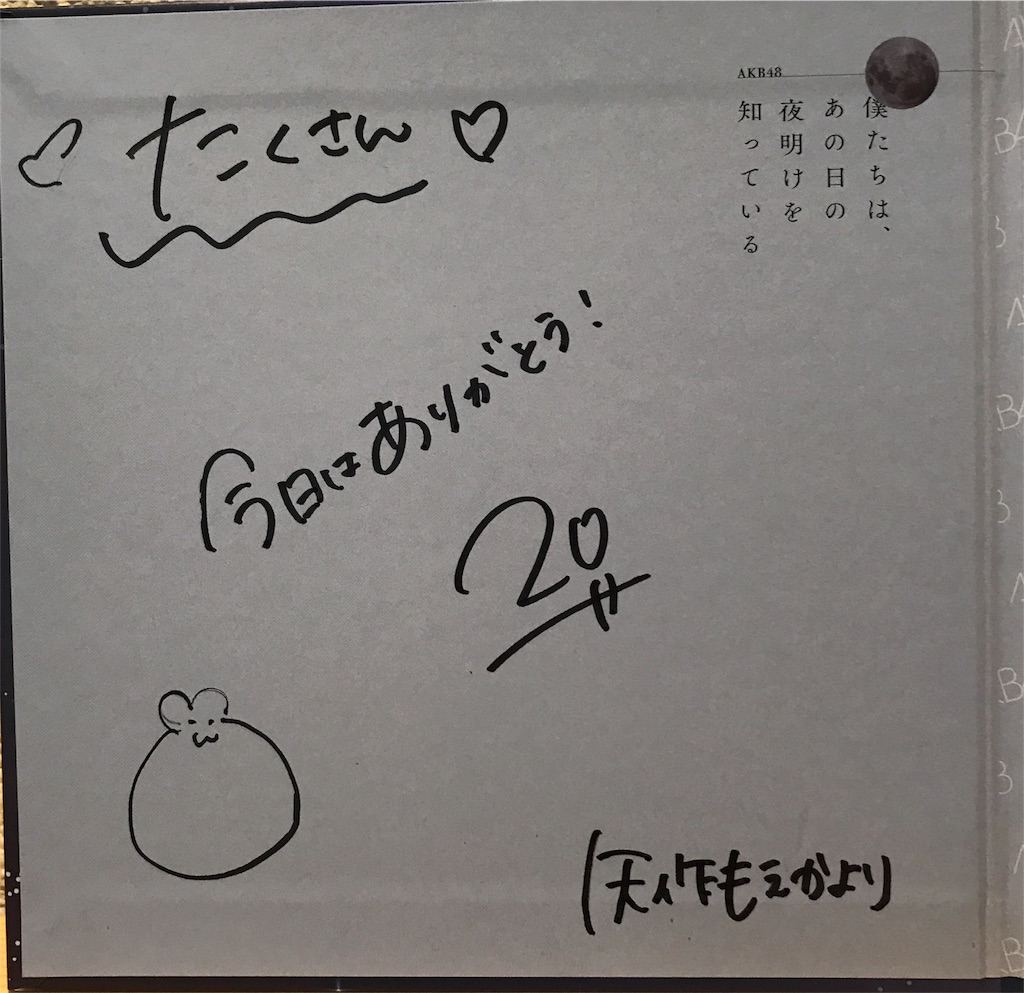 AKB48
僕たちは、
あの日の
夜明けを
知っている
♡ たくさん ♡
今日はありがとう!
20
(矢作もえかより